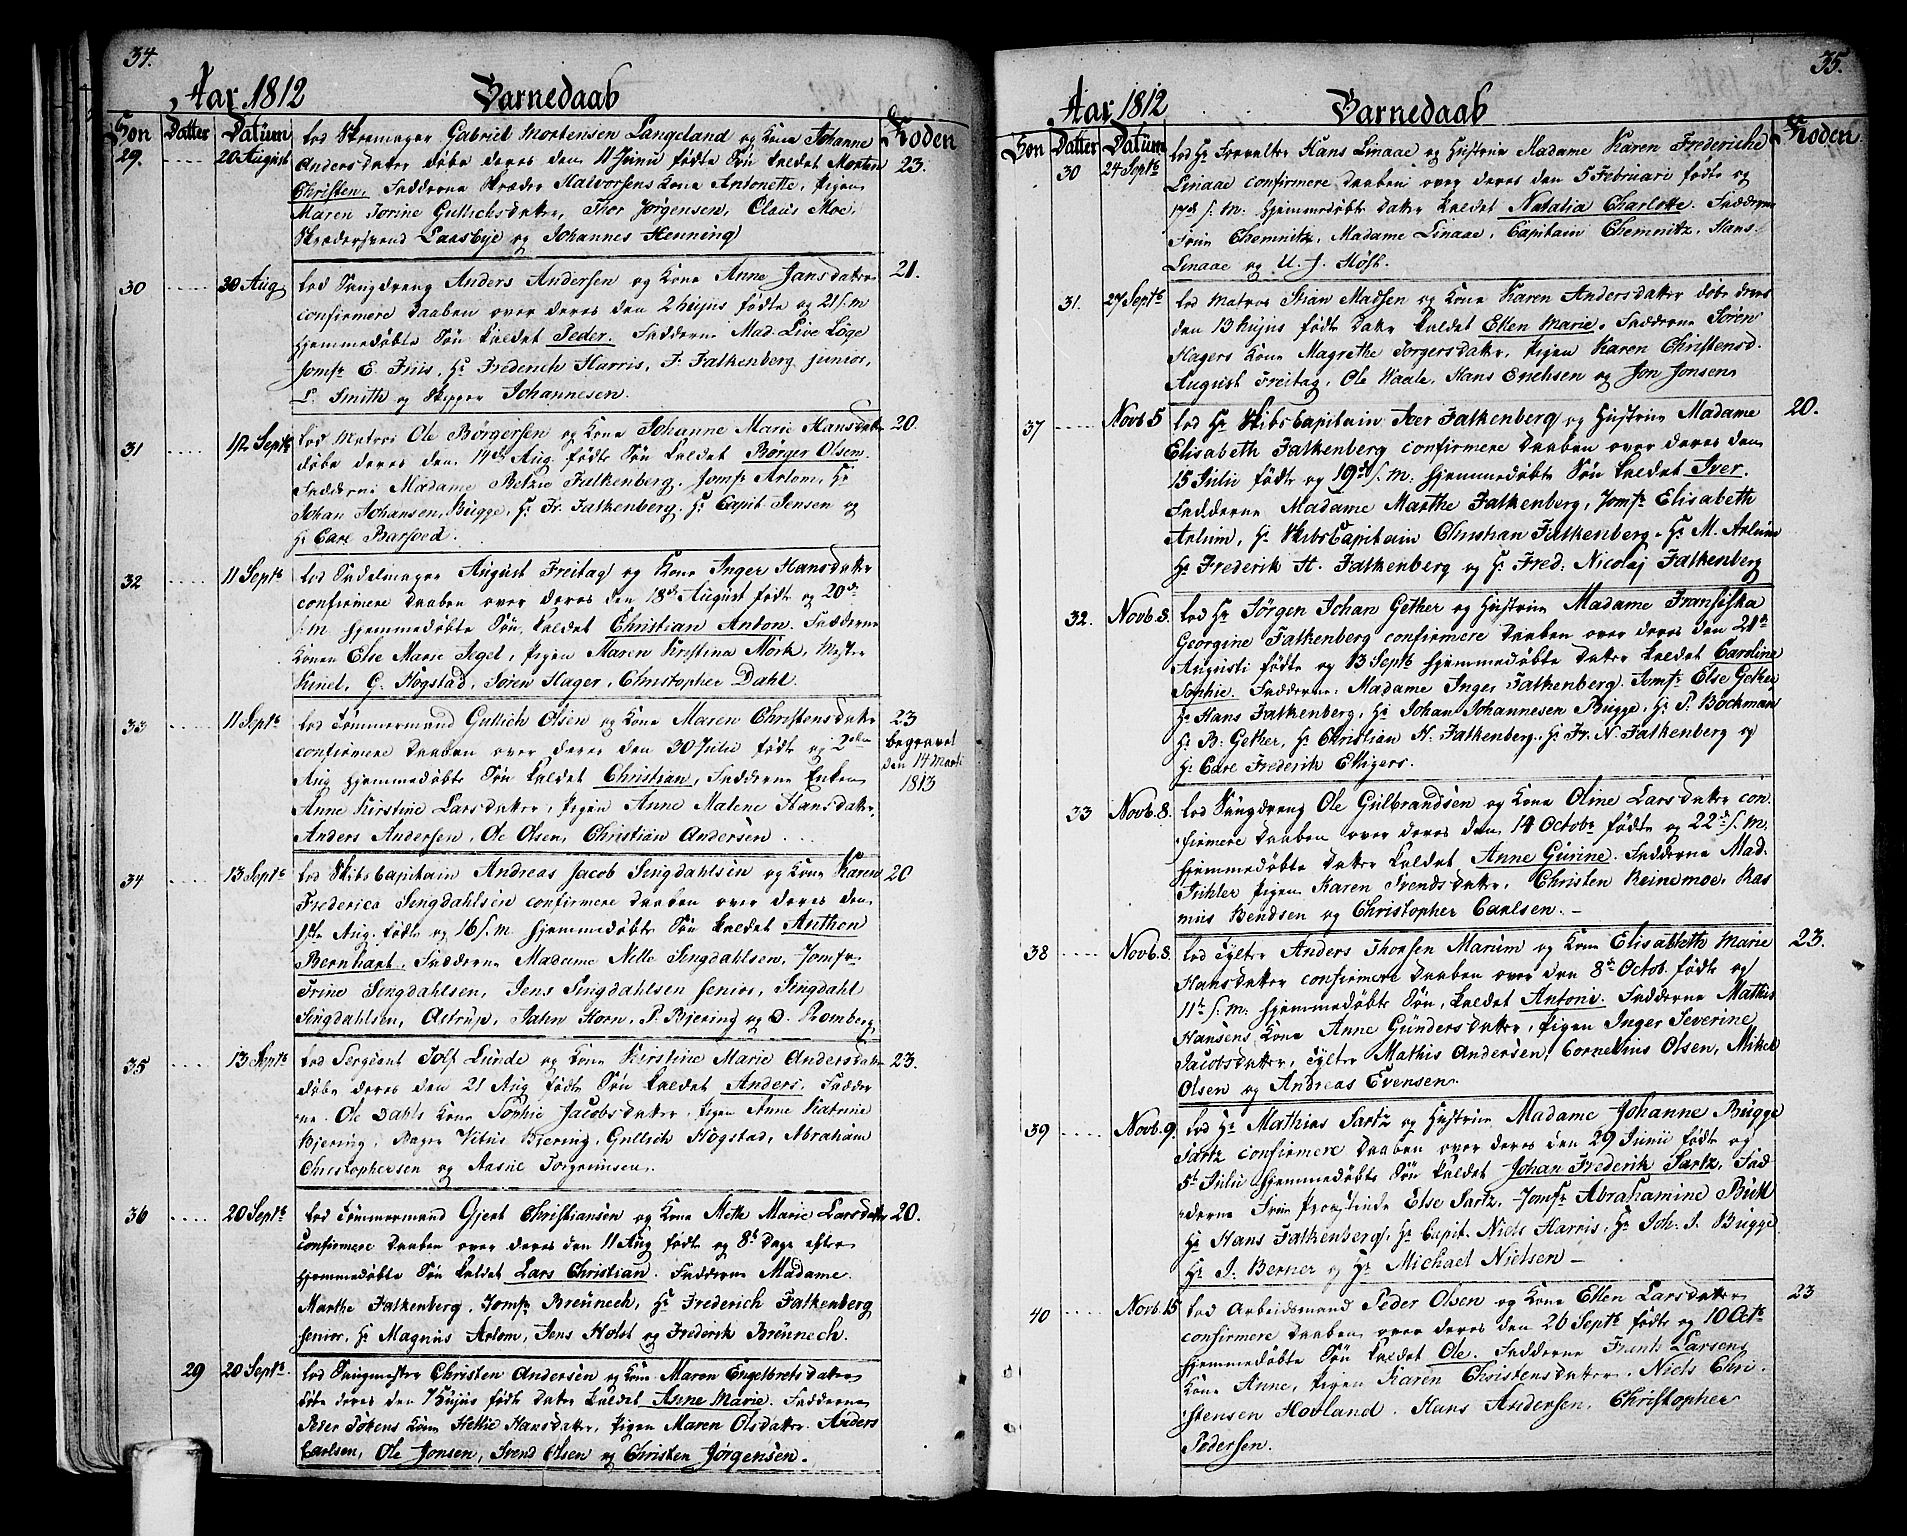 34.
Aar 1812 Barnedaab
Søn Datter Datum Roden
29. 20 August lod Skomager Gabriel Mortensen Langeland og Kone Johanne 23.
Andersdater døbe deres den 11 Junii fødte Søn kaldet Morten
Christen, Fadderne Skræder Halvorsens Kone Antonette, Pigen
Maren Jorine Gullichsdater, Thor Jørgensen, Claus Moe,
Skrædersvend Laasbye og Johannes Henning
30 30 Aug lod Anders Andersen og Kone Anne Jansdater 21.
confirmere Daaben over deres den 2 hujus fødte og 21 s. m
hjemmedøbte Søn kaldet Peder. Fadderne Mad. Live Löge
Jomfr E. Friis, Hr Frederich Harris, F. Falkenberg junior,
L. Smith og Skipper Johannesen.
31 12 Septb lod Matros Ole Børgersen og Kone Johanne Marie Hansdater 20.
døbe deres den 14de Aug. fødte Søn kaldet Børger Olsen.
Fadderne Madame Betzie Falkenberg. Jomfr Arlom, Hr
Johan Johansen Bugge, Hr Fr. Falkenberg, Hr Capit Jensen og
Hr Carl Barfoed.
32 11 Septb lod Sadelmager August Freitag og Kone Inger Hansdater
confirmere Daaben over deres den 18de August født og 20de
s. m hjemmedøbte Søn, kaldet Christian Anton. Fadderne
Konen Else Marie Segel, Pigen Maren Kirstina Mörk, Mester
Kinel, G. Högstad, Sören Hager, Christopher Dahl.
33 11 Septb lod Tømmermand Gullich Olsen og Kone Maren Christensdater 23
confirmere Daaben over deres den 30 Julii født og 2den begravet
Aug hjemmedøbte Søn kaldet Christian, Fadderne Enken den 14 Marti
Anne Kirstine Larsdater, Pigen Anne Malene Hansdater, 1813
Anders Andersen, Ole Olsen, Christian Andersen
34 13 Septb lod SkibsCapitain Andreas Jacob Singdahlsen og Kone Karen 20
Frederica Singdahlsen confirmere Daaben over deres den
1ste Aug. fødte og 16 s. m hjemmedøbte Søn kaldet Anthon
Bernhart. Fadderne Madame Nelle Singdahlsen, Jomfr
Trine Singdahlsen, Jens Singdahlsen senior, Singdahl
Singdahlsen, Astrup, Jahn Horn, P. Bjering og D. Romberg
35 13 Septb lod Sergeant Tolf Lunde og Kone Kirstine Marie Andersdater 23.
døbe deres den 21 Aug fødte Søn kaldet Anders. Fadder
ne. Ole Dahls Kone Sophie Jacobsdater, Pigen Anne Katrine
Bjering, Bager Vitus Biering, Gullich Högstad, Abraham
Christophersen og Aasne Torgrimsen.
36 20 Septb lod Tømmermand Gjert Christiansen og Kone Mette Marie Larsdater 20.
confirmere Daaben over deres den 11 Aug født og 8te Dage efter
hjemmedøbte Søn kaldet Lars Christian. Fadderne Madame
Marthe Falkenberg, Jomfr Brünnech, Hr Frederich Falkenberg
senior, Hr Magnus Arlom, Jens Holst og Frederik Brünnech.
29 20 Septb. lod Christen Andersen og Kone Maren Engelbretsdater
døbe deres den 1 hujus født Dater kaldet Anne Marie. Fadderne
Peder Kone Helvie Hansdater, Pigen Maren Olsdater, Anders
Carlsen, Ole Jonsen, Svend Olsen og Christen Jörgensen.
35.
Aar 1812 Barnedaab
Søn Datter Datum Roden
30 24 Septb lod Hr Forvalter Hans Linaae og Hustrue Madame Karen Frederiche
Linaae confirmere Daaben over deres den 5 Februari fødte og
17de s. m. hjemmedøbte Dater kaldet Natalia Charlotte. Fadderne
Frue Chemnitz, Madame Linaae, Capitain Chemnitz, Hans
Linaae og U. J. Høst.
31. 27 Septb lod Matros Stian Madsen og Kone Karen Andersdater døbe deres
den 13 hujus fødte Dater kaldet Ellen Marie. Fadderne Sören
Hagers Kone Magrethe Torgersdater, Pigen Karen Christensd.
August Freitag, Ole Waale, Hans Enehsen og Jon Jonsen
37 Novb. 5 lod Hr SkibsCapitain Iver Falkenberg og Hustrue Madame 20.
Elisabeth Falkenberg confirmere Daaben over deres den
15 Julii født og 19de s. m. hjemmedøbte Søn kaldet Iver.
Fadderne Madame Marthe Falkenberg, Jomfr Elisabeth
Arlum, Hr SkibsCapitain Christian Falkenberg, Hr M. Arlum
Hr Frederik H. Falkenberg og Hr Fred: Nicolaj Falkenberg
32. Novb. 8. lod Hr Jörgen Johan Gether og Hustrue Madame Fransiska
Georgine Falkenberg confirmere Daaben over deres den 21de
Augusti fødte og 13 Septb hjemmedøbte Dater kaldet Caroline
Sophie. Fadderne: Madame Inger Falkenberg. Jomfr Else Gether
Hr Hans Falkenberg, Hr Johan Johannesen Bugge, Hr P. Bockman
Hr B: Gether, Hr Christian H. Falkenberg, Hr Fr. N. Falkenberg og
Hr Carl Frederik Ettigers.
33 Novb. 8. lod Ole Gulbrandsen og Kone Oline Larsdater con
firmere Daaben over deres den 14 Octobr fødte og 22de s. m.
hjemmedøbte Dater kaldet Anne Gurine. Fadderne Mad.
Fihler Pigen Karen Svendsdater, Christen Reinemoe, Ras
mus Bendsen og Christopher Carlsen. –
38 Novb. 8. lod Anders Thorsen Marum og Kone Elisabeth Marie 23.
Hansdater confirmere Daaben over den 8de Octob. fødte og
11te s. m. hjemmedøbte Søn, kaldet Antoni. Fadderne Mathis
Hansens Kone Anne Gundersdater, Pigen Inger Severine
Jacobsdater, Mathis Andersen, Cornelius Olsen, Mikel
Olsen og Andreas Evensen.
39 Novb. 9. lod Hr Mathias Sartz og Hustrue Madame Johanne Bugge
Sartz confirmere Daaben over deres den 29 Junii fødte og
5te Julii hjemmedøbte Søn kaldet Johan Frederik Sartz. Fad
derne Frue Provstinde Else Sartz, Jomfr Abrahamine Bull
Hr Hans Falkenberg, Hr Capit. Niels Harris, Hr Joh. J. Bugge
Hr J. Berner og Hr Michael Nielsen –
40 Novb. 15 lod Arbeidsmand Peder Olsen og Kone Ellen Larsdater 23
confirmere Daaben over deres den 26 Septb fødte og 10 Octb
hjemmedøbte Søn kaldet Ole. Fadderne Frants Larsens
Kone Anne, Pigen Karen Christensdater, Niels Chri
stensen Hovland. Hans Andersen, Christopher
Pedersen.